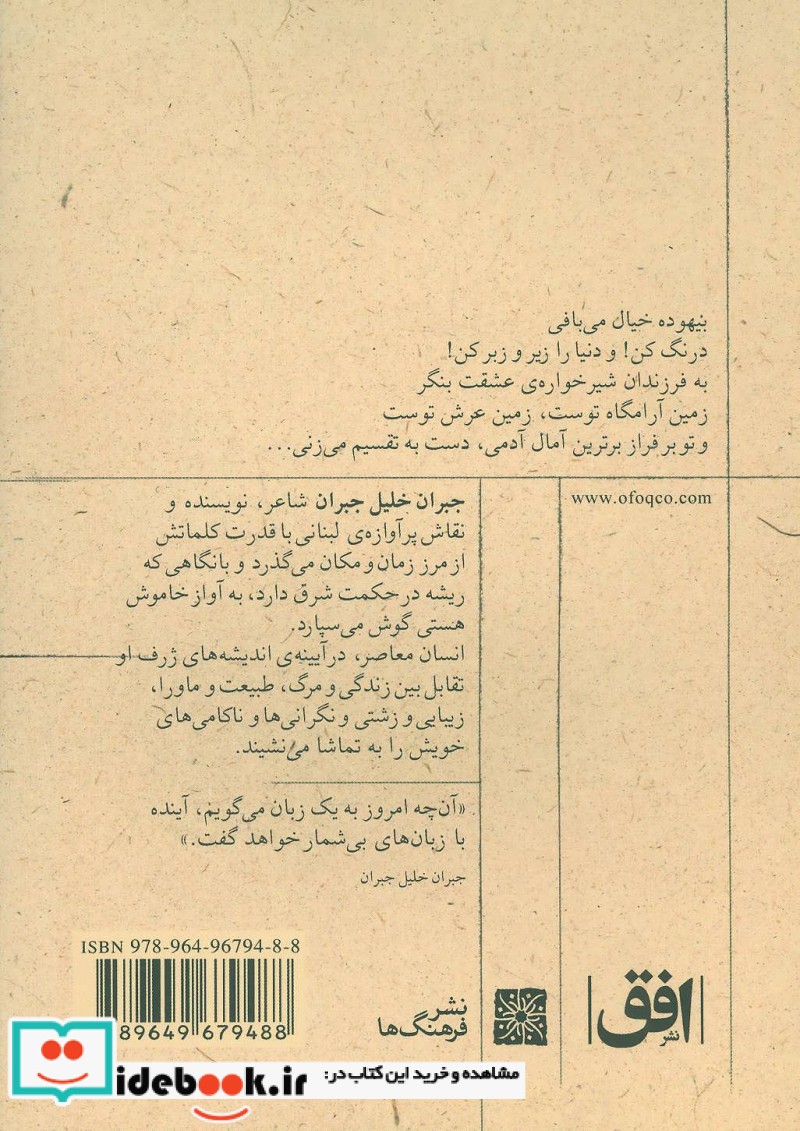 بیهوده خیال می‌بافی
درنگ کن! و دنیا را زیر و زبر کن!
به فرزندان شیرخواره‌ی عشقت بنگر
زمین آرامگاه توست، زمین عرش توست
و تو بر فراز برترین آمال آدمی، دست به تقسیم می‌زنی...
www.ofoqco.com
جبران خلیل جبران شاعر، نویسنده و
نقاش پرآوازه‌ی لبنانی با قدرت کلماتش
از مرز زمان و مکان می‌گذرد و با نگاهی که
ریشه در حکمت شرق دارد، به آواز خاموش
هستی گوش می‌سپارد.
انسان معاصر، در آیینه‌ی اندیشه‌های ژرف او
تقابل بین زندگی و مرگ، طبیعت و ماورا،
زیبایی و زشتی و نگرانی‌ها و ناکامی‌های
خویش را به تماشا می‌نشیند.
«آن‌چه امروز به یک زبان می‌گویم، آینده
با زبان‌های بی‌شمار خواهد گفت.»
جبران خلیل جبران
ISBN 978-964-96794-8-8
89649 679488
نشر
فرهنگ‌ها
افق
نشر
idebook.ir
مشاهده و خرید این کتاب در: